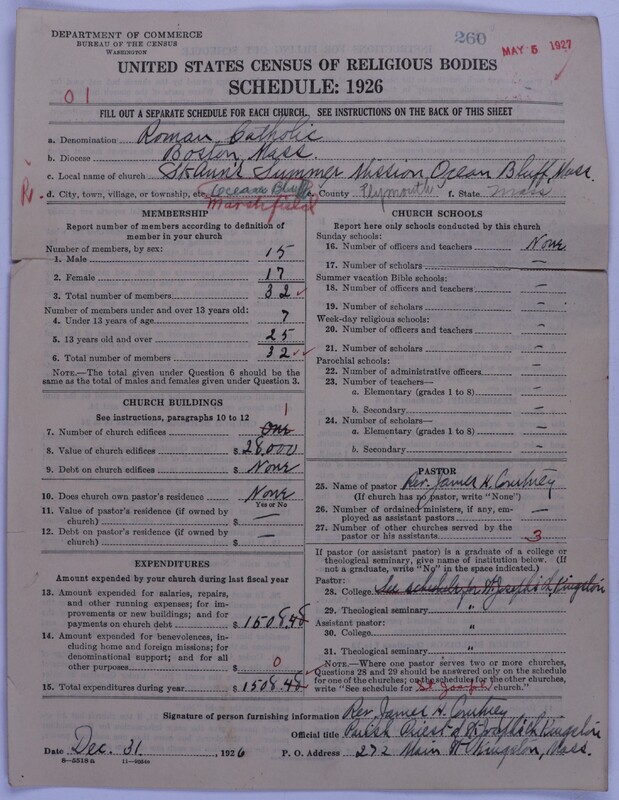 DEPARTMENT OF COMMERCE
BUREAU OF THE CENSUS
WASHINGTON
260
MAY 5 1927
UNITED STATES CENSUS OF RELIGIOUS BODIES
SCHEDULE: 1926
01
FILL OUT A SEPARATE SCHEDULE FOR EACH CHURCH. SEE INSTRUCTIONS ON THE BACK OF THIS SHEET
a. Denomination Roman Catholic
b. Diocese Boston, Mass.
c. Local name of church St. Ann's Summer Mission Ocean Bluff, Mass.
d. City, town, village, or township, etc. Ocean Bluff e. County Plymouth f. State Mass
Marshfield
MEMBERSHIP
Report number of members according to definition of member in your church
Number of members, by sex:
1. Male 15
2. Female 17
3. Total number of members 32
Number of members under and over 13 years old:
4. Under 13 years of age 7
5. 13 years old and over 25
6. Total number of members 32
NOTE.—The total given under Question 6 should be the same as the total of males and females given under Question 3.
CHURCH BUILDINGS
See instructions, paragraphs 10 to 12
1
7. Number of church edifices One
8. Value of church edifices $ 28,000
9. Debt on church edifices $ None
10. Does church own pastor's residence None
Yes or No
11. Value of pastor's residence (if owned by church) $ —
12. Debt on pastor's residence (if owned by church) $ —
EXPENDITURES
Amount expended by church during last fiscal year
13. Amount expended for salaries, repairs, and other running expenses; for improvements or new buildings; and for payments on church debt $ 1508.48
14. Amount expended for benevolences, including home and foreign missions; for denominational support; and for all other purposes $ 0
15. Total expenditures during year $ 1508.48
CHURCH SCHOOLS
Report here only schools conducted by this church
Sunday schools:
16. Number of officers and teachers None
17. Number of scholars —
Summer vacation Bible schools:
18. Number of officers and teachers —
19. Number of scholars —
Week-day religious schools:
20. Number of officers and teachers —
21. Number of scholars —
Parochial schools:
22. Number of administrative officers —
23. Number of teachers—
a. Elementary (grades 1 to 8) —
b. Secondary —
24. Number of scholars—
a. Elementary (grades 1 to 8) —
b. Secondary —
PASTOR
25. Name of pastor Rev. James H. Courtney
(If church has no pastor, write "None")
26. Number of ordained ministers, if any, employed as assistant pastors —
27. Number of other churches served by the pastor or his assistants 3
If pastor (or assistant pastor) is a graduate of a college or theological seminary, give name of institution below. (If not a graduate, write "No" in the space indicated.)
Pastor:
28. College See schedule for St. Joseph's Ch. Kingston
29. Theological seminary "
Assistant pastor:
30. College "
31. Theological seminary "
NOTE.—Where one pastor serves two or more churches, Questions 28 and 29 should be answered only on the schedule for one of the churches; on the schedules for the other churches, write "See schedule for St. Joseph church."
Signature of person furnishing information Rev. James H. Courtney
Official title Parish Priest of St. Joseph's Ch Kingston
Date Dec. 31 1926 P. O. Address 272 Main St Kingston, Mass.
8—5518a 11—